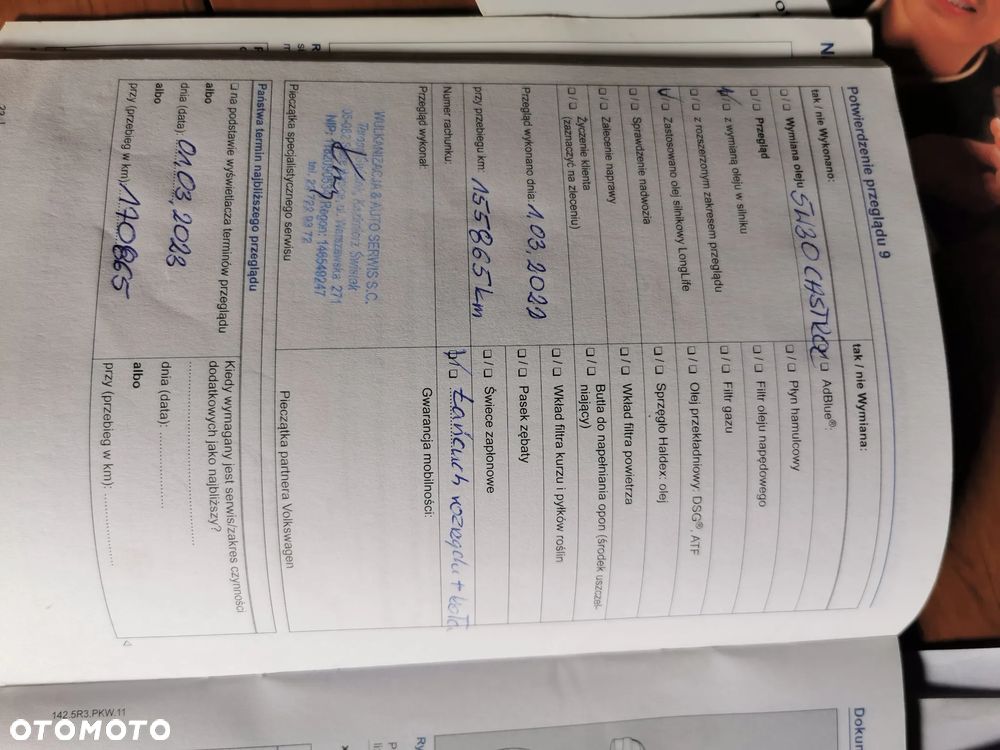 Potwierdzenie przeglądu 9
tak / nie Wykonano:
❑ / ❑ Wymiana oleju 5W30 CASTROL
❑ / ❑ Przegląd
❑ / ❑ z wymianą oleju w silniku
❑ / ❑ z rozszerzonym zakresem przeglądu
❑ / ❑ Zastosowano olej silnikowy LongLife
❑ / ❑ Sprawdzenie nadwozia
❑ / ❑ Zalecenie naprawy
❑ / ❑ Życzenie klienta
(zaznaczyć na zleceniu)
Przegląd wykonano dnia: 1.03.2022
przy przebiegu km: 155865 km
Numer rachunku:
Przegląd wykonał:
WULKANIZACJA & AUTO SERWIS S.C.
Kazimierz Świstak
ul. Warszawska 271
Regon: 146549247
Pieczątka specjalistycznego serwisu
tak / nie Wymiana:
❑ AdBlue®:
❑ / ❑ Płyn hamulcowy
❑ / ❑ Filtr oleju napędowego
❑ / ❑ Filtr gazu
❑ / ❑ Olej przekładniowy: DSG®, ATF
❑ / ❑ Sprzęgło Haldex: olej
❑ / ❑ Wkład filtra powietrza
❑ / ❑ Butla do napełniania opon (środek uszczel-
niający)
❑ / ❑ Wkład filtra kurzu i pyłków roślin
❑ / ❑ Pasek zębaty
❑ / ❑ Świece zapłonowe
❑ / ❑ Łańcuch rozrządu + koła
Gwarancja mobilności:
Pieczątka partnera Volkswagen
Państwa termin najbliższego przeglądu
❑ na podstawie wyświetlacza terminów przeglądu
albo
dnia (data): 01.03.2023
albo
przy (przebieg w km) 170865
Kiedy wymagany jest serwis/zakres czynności
dodatkowych jako najbliższy?
dnia (data):
albo
przy (przebieg w km):
142.5R3.PKW.11
Dokum
OTOMOTO